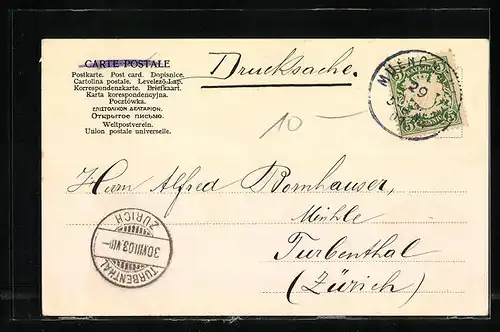 CARTE POSTALE
Postkarte. Post card. Dopisnice.
Cartolina postale. Levelező-Lap.
Korrespondenzkarte. Briefkaart.
Karta korespondencyjna.
Pocztówka.
ΕΠΙΣΤΟΛΙΚΟΝ ΔΕΛΤΑΡΙΟΝ.
Открытое письмо.
Weltpostverein.
Union postale universelle.
Drucksache.
10 —
29
5
Herrn Alfred Bornhauser,
Mühle
Turbenthal
(Zürich)
ZÜRICH
30.VII.03.VII
TURBENTHAL